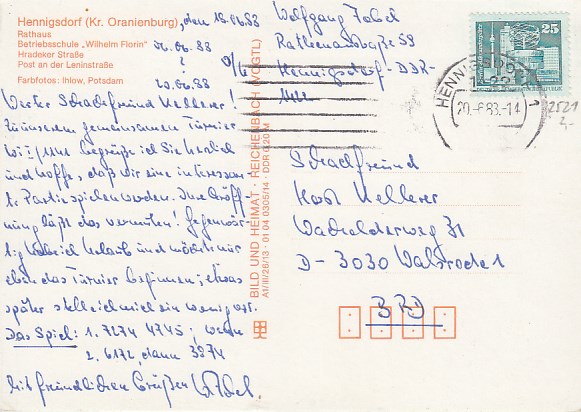 Hennigsdorf (Kr. Oranienburg), den 18.06.83
Rathaus
Betriebsschule „Wilhelm Florin“
Hradeker Straße
Post an der Leninstraße
Farbfotos: Ihlow, Potsdam
06.06.83
20.06.83
Werter Schachfreund Kellerer!
Zu unserem gemeinsamen Turnier
begrüße ich Sie herzlich
und hoffe, daß wir eine interessan-
te Partie spielen werden. Ihre Eröff-
nung läßt das vermuten! Gegenwär-
tig habe ich Urlaub und möchte nur
eben das Turnier beginnen; etwas
später stelle ich mich ein wenig vor.
Das Spiel: 1. 7274 4745; wenn
2. 6172, dann 3874
Mit freundlichen Grüßen
BILD UND HEIMAT · REICHENBACH (VOGTL)
A1/III/26/13 · 01 04 0305/14 · DDR 0,20 M
Wolfgang Zabel
Rathenaustraße 59
Hennigsdorf - DDR -
1422
25
HENNIGSDORF
20.-6.83.-14
1
2521
2,-
Schachfreund
Karl Kellerer
Wacholderweg 31
D - 3030 Walsrode 1
BRD